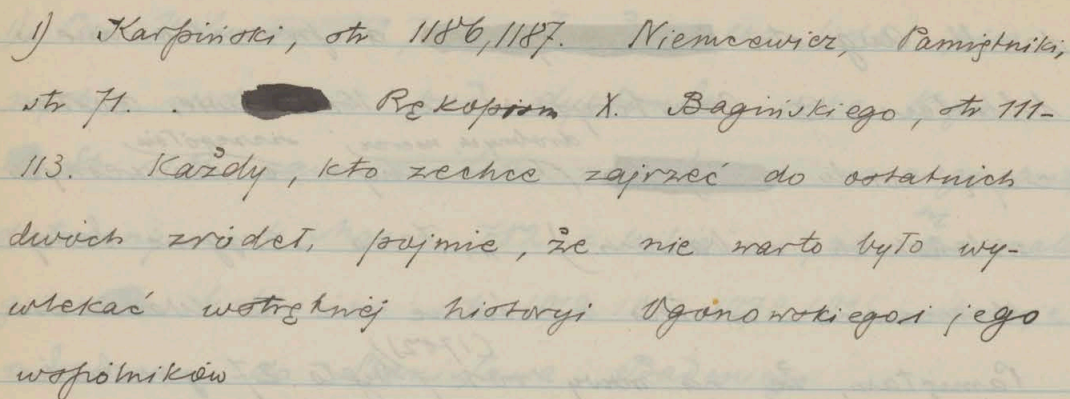 1) Karpiński, str 1186, 1187. Niemcewicz, Pamiętniki,
str 71. . Rękopism X. Bagińskiego, str 111-
113. Każdy, kto zechce zajrzeć do ostatnich
dwóch zródeł, pojmie, że nie warto było wy-
wlekać wstrętnéj historyi Ogonowskiego i jego
wspólników